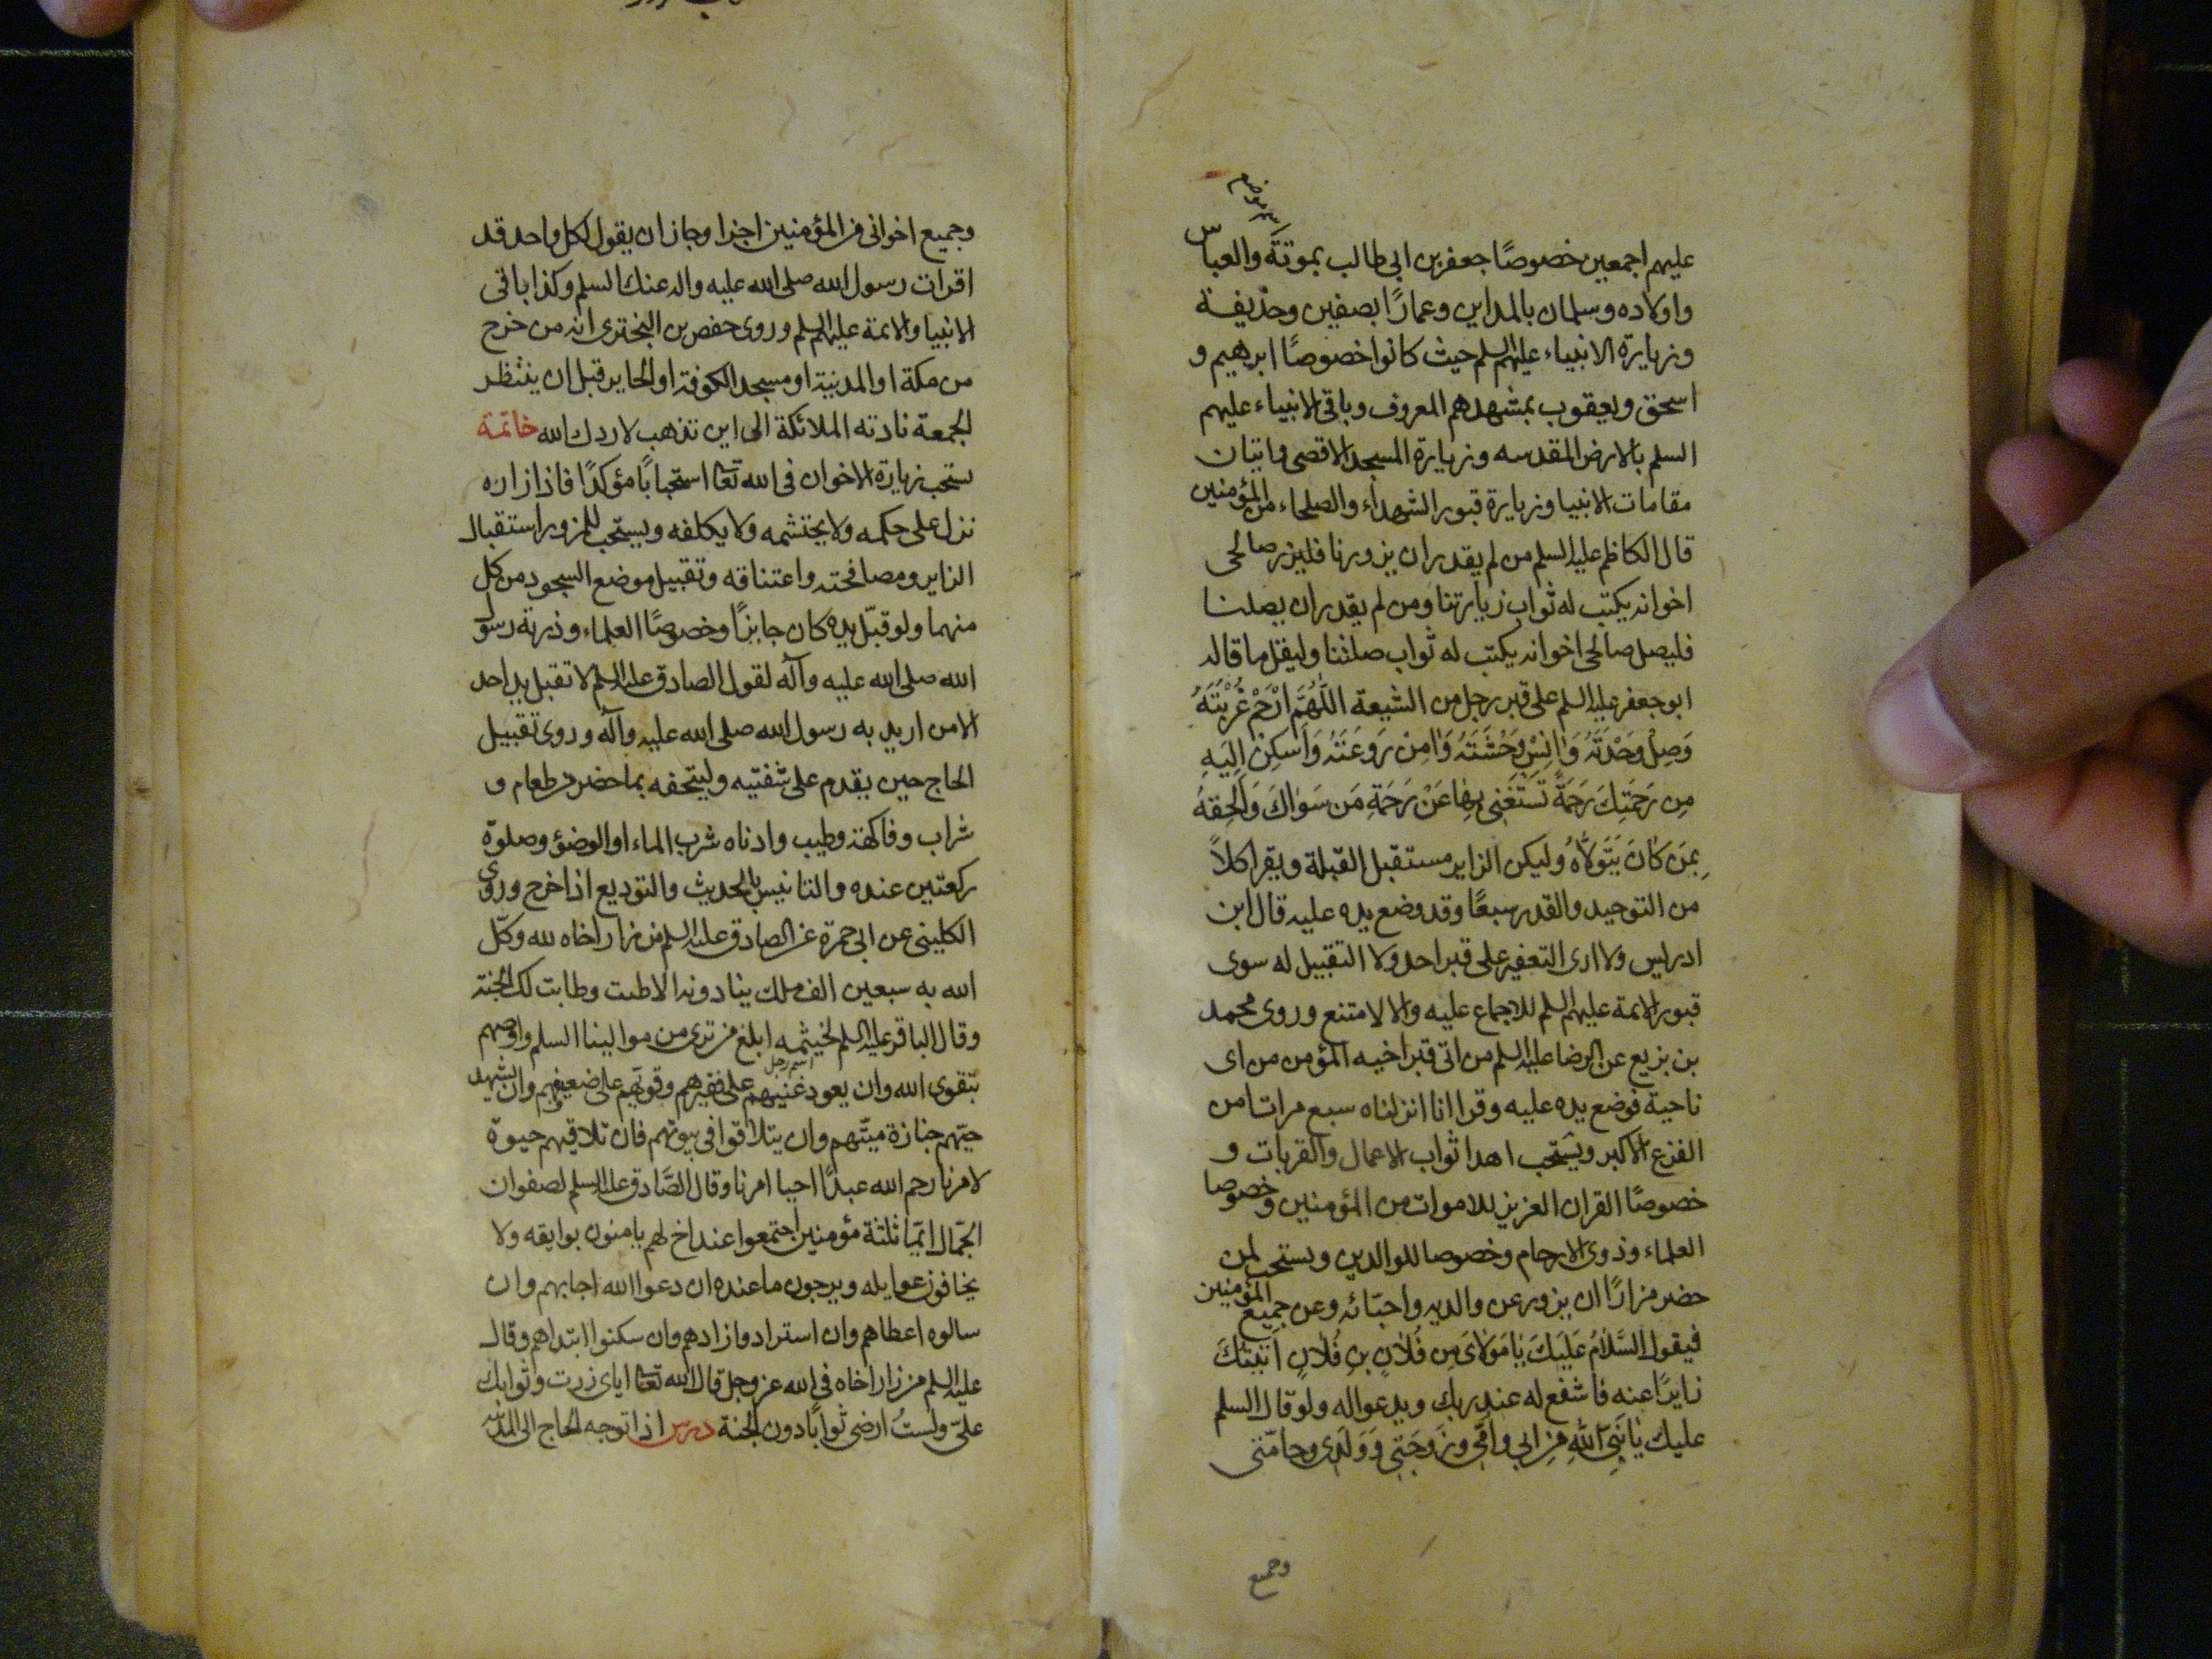 اسم موضع
عليهم اجمعين خصوصًا جعفر بن ابى طالب بموتَة والعباس
واولاده وسلمان بالمداين وعمارًا بصفين وحذيفة
وزيارة الانبياء عليهم السلم حيث كانوا خصوصًا ابرهيم و
اسحق ويعقوب بمشهدهم المعروف وباقى الانبياء عليهم
السلم بالارض المقدسه وزيارة المسجد الاقصى واتيان
مقامات الانبيا وزيارة قبور الشهداء والصلحاء من المؤمنين
قال الكاظم عليه السلم من لم يقدر ان يزورنا فليزر صالحى
اخوانه يكتب له ثواب زيارتنا ومن لم يقدر ان يصلنا
فليصل صالحى اخوانه يكتب له ثواب صلتنا وليقل ما قاله
ابو جعفر عليه السلم على قبر رجل من الشيعة اللّٰهُمَّ ارْحَمْ غُرْبَتَهُ
وَصِلْ وَحْدَتَهُ وَاٰنِسْ وَحْشَتَهُ وَاٰمِنْ رَوعَتَهُ وَاَسكِنْ اِلَيهِ
مِن رَحمَتِكَ رَحمَةً تَستَغنى بِهٰا عَنْ رَحمَةِ مَن سِوٰاكَ وَاَلحِقهُ
بِمَن كٰانَ يَتَوَلّٰاهُ وليكن الزاير مستقبل القبلة ويقرا كلاً
من التوحيد والقدر سبعًا وقد وضع يده عليه قال ابن
ادريس ولا ارى التعفير على قبر احد ولا التقبيل له سوى
قبور الائمة عليهم السلم للاجماع عليه والا لامتنع وروى محمد
بن بزيع عن الرضا عليه السلم من اتى قبر اخيه المؤمن من اى
ناحية فوضع يده عليه وقرا انا انزلناه سبع مرات امن
الفزع الاكبر ويستحب اهدا ثواب الاعمال والقربات و
خصوصًا القران العزيز للاموات من المؤمنين وخصوصا
العلماء وذوى الارحام وخصوصا للوالدين ويستحب لمن
حضر مزارًا ان يزور عن والديه واحبّائه وعن جميع المؤمنين
فيقول السَّلٰامُ عَلَيكَ يٰا مَولٰاىَ مِن فُلٰانِ بنِ فُلٰانٍ اَتَيتُكَ
زايرًا عنه فاشفع له عند ربك ويدعوا له ولو قال السلم
عليك يٰا نَبِىَّ اللّٰهِ مِن ابى واُمّى وزَوجَتى وَوَلَدى وحامّتى
وجميع
وجميع اخوانى من المؤمنين اجزا وجاز ان يقول لكل واحد قد
اقرات رسول الله صلى الله عليه واله عنك السلم وكذا باقى
الانبيا والائمة عليهم السلم وروى حفص بن البخترى انه من خرج
من مكة او المدينة او مسجد الكوفة او الحاير قبل ان ينتظر
الجمعة نادته الملائكة الى اين تذهب لا ردك الله خاتمة
يستحب زيارة الاخوان فى الله تعا استحبابًا مؤكدًا فاذا زاره
نزل على حكمه ولا يحتشمه ولا يكلفه ويستحب للمزور استقبال
الزاير ومصافحته واعتناقه وتقبيل موضع السجود من كل
منهما ولو قبّل يده كان جايزًا وخصوصًا العلماء وذرية رسول
الله صلى الله عليه وآله لقول الصادق عليه السلم لا تقبل يد احد
الا من اريد به رسول الله صلى الله عليه وآله وروى تقبيل
الحاج حين يقدم على شفتيه وليتحفه بما حضر من طعام و
شراب وفاكهة وطيب وادناه شرب الماء او الوضؤ وصلوة
ركعتين عنده والتانيس بالحديث والتوديع اذا خرج وروى
الكلينى عن ابى حمزة عن الصادق عليه السلم من زار اخاه لله وكّل
الله به سبعين الف ملك ينادونه الا طبت وطابت لك الجنة
وقال الباقر عليه السلم لخيثمه ابلغ من ترى من موالينا السلم واوصهم
اسم رجل
بتقوى الله وان يعود غنيهم على فقيرهم وقويهم على ضعيفهم وان يشهد
حيّهم جنازة ميّتهم وان يتلاقوا فى بيوتهم فان تلاقيهم حيوة
لامرنا رحم الله عبدًا احيا امرنا وقال الصّادق عليه السلم لصفوان
الجمّال ايّما ثلثة مؤمنين اجتمعوا عند اخ لهم يامنون بوايقه ولا
يخافون غوايله ويرجون ما عنده ان دعوا الله اجابهم وان
سالوه اعطاهم وان استزادوا زادهم وان سكتوا ابتداهم وقال
عليه السلم من زار اخاه فى الله عز وجل قال الله تعا اياى زرت وثوابك
علىّ ولستُ ارضى ثوابًا دون الجنة درس اذا توجه الحاج الى المدينه